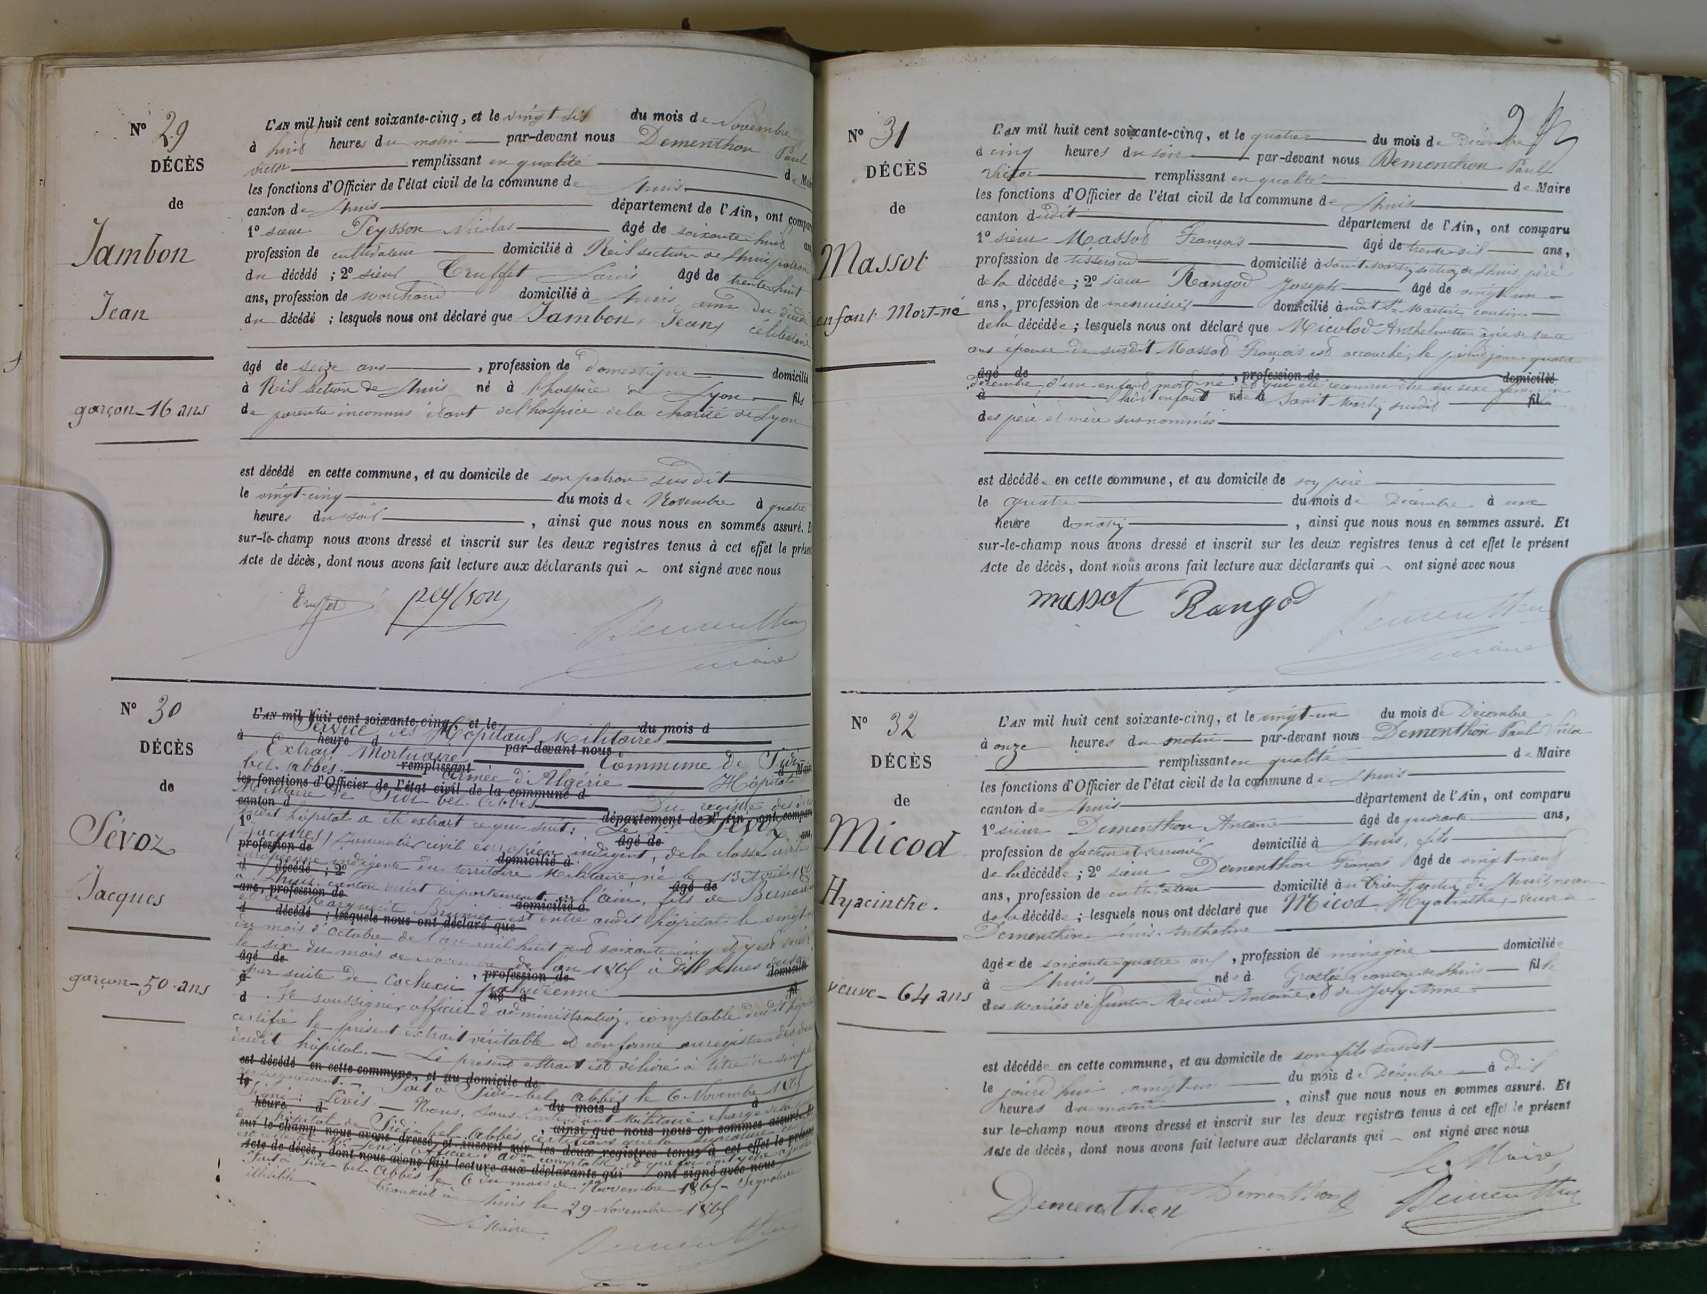 N° 29
DÉCÈS
de
Jambon
Jean
garçon - 16 ans
L'AN mil huit cent soixante-cinq, et le vingt six du mois de Novembre
à huit heures du matin par-devant nous Dementhon Paul
Victor remplissant en qualité de Maire
les fonctions d'Officier de l'état civil de la commune de Lhuis
canton de Lhuis département de l'Ain, ont comparu
1° sieur Peysson Nicolas âgé de soixante huit ans
profession de cultivateur domicilié à section de Lhuis patron
du décédé ; 2° sieur Truffet Louis âgé de trente huit
ans, profession de domicilié à Lhuis, ami du dudit
du décédé ; lesquels nous ont déclaré que Jambon, Jean, célibataire
âgé de seize ans, profession de domestique domicilié
à section de Lhuis né à l'hospice de Lyon fils
de parents inconnus de l'hospice de la charité de Lyon
est décédé en cette commune, et au domicile de son patron susdit
le vingt-cinq du mois de Novembre à quatre
heures du soir, ainsi que nous nous en sommes assuré. Et
sur-le-champ nous avons dressé et inscrit sur les deux registres tenus à cet effet le présent
Acte de décès, dont nous avons fait lecture aux déclarants qui ~ ont signé avec nous
Truffet peysson Dementhon
maire
N° 30
DÉCÈS
de
Sévoz
Jacques
garçon - 50 ans
Service des Hôpitaux Militaires
Extrait Mortuaire Commune de Sidi
bel-abbès. Armée d'Algérie Hôpital
Militaire de Sidi bel abbès Du registre des décès
dudit hôpital a été extrait ce qui suit : Le Sr Sévoz
(Jacques) civil européen indigent, de la classe civile
européenne indigente du territoire Militaire né le 13
à Lhuis canton dudit département de l'ain, fils de Bernard
et de Marguerite est entré audit hôpital le vingt
du mois d'Octobre de l'an mil huit cent soixante cinq et y est décédé
le six du mois de novembre de l'an 1865 à dix heures du
par suite de Cachexie
Je soussigné officier d'administration, comptable dudit hôpital
certifie le présent extrait véritable et conforme au registre des décès
dudit hôpital. — Le présent extrait est délivré à titre de simple
renseignement. — Fait à Sidi bel abbès le 6 Novembre 1865
signé : Levis — Nous, Sous intendant Militaire chargé de la
hôpital de Sidi bel abbès certifions que la signature
Sidi bel abbès le 6 du mois de Novembre 1865 - Signature
illisible. Transcrit à Lhuis le 29 Novembre 1865
Le Maire
Dementhon
N° 31
DÉCÈS
de
Massot
enfant Mort-né
L'AN mil huit cent soixante-cinq, et le quatre du mois de Décembre
à cinq heures du soir par-devant nous Dementhon Paul
Victor remplissant en qualité de Maire
les fonctions d'Officier de l'état civil de la commune de Lhuis
canton dudit département de l'Ain, ont comparu
1° sieur Massot François âgé de trente six ans,
profession de tisserand domicilié à Saint Martin section de Lhuis, père
de la décédée ; 2° sieur Rangod Joseph âgé de vingt un
ans, profession de menuisier domicilié audit St Martin, cousin
de la décédée ; lesquels nous ont déclaré que Micolod Anthelmette âgée de trente
ans épouse du susdit Massot François est accouchée, le jourd'hui quatre
décembre, d'un enfant mort-né et qui a été reconnu être du sexe féminin
ledit enfant né à Saint Martin susdit fille
des père et mère susnommés
est décédée en cette commune, et au domicile de son père
le quatre du mois de Décembre à une
heure du matin, ainsi que nous nous en sommes assuré. Et
sur-le-champ nous avons dressé et inscrit sur les deux registres tenus à cet effet le présent
Acte de décès, dont nous avons fait lecture aux déclarants qui ~ ont signé avec nous
massot Rangod Dementhon
maire
N° 32
DÉCÈS
de
Micod
Hyacinthe.
veuve - 64 ans
L'AN mil huit cent soixante-cinq, et le vingt-un du mois de Décembre
à onze heures du matin par-devant nous Dementhon Paul Victor
remplissant en qualité de Maire
les fonctions d'Officier de l'état civil de la commune de Lhuis
canton de Lhuis département de l'Ain, ont comparu
1° sieur Dementhon Antoine âgé de quarante ans,
profession de facteur domicilié à Lhuis, fils
de la décédée ; 2° sieur Dementhon François âgé de vingt-neuf
ans, profession de cultivateur domicilié à section de Lhuis neveu
de la décédée ; lesquels nous ont déclaré que Micod, Hyacinthe, veuve de
Dementhon Anthelme
âgée de soixante quatre ans, profession de ménagère domiciliée
à Lhuis née à Groslée, canton de Lhuis fille
des mariés défunts Micod Antoine et de Joly Anne
est décédée en cette commune, et au domicile de son fils susdit
le jourd'hui vingt un du mois de Décembre à dix
heures du matin, ainsi que nous nous en sommes assuré. Et
sur le-champ nous avons dressé et inscrit sur les deux registres tenus à cet effet le présent
Acte de décès, dont nous avons fait lecture aux déclarants qui ~ ont signé avec nous
Le Maire,
Dementhon Dementhon f Dementhon